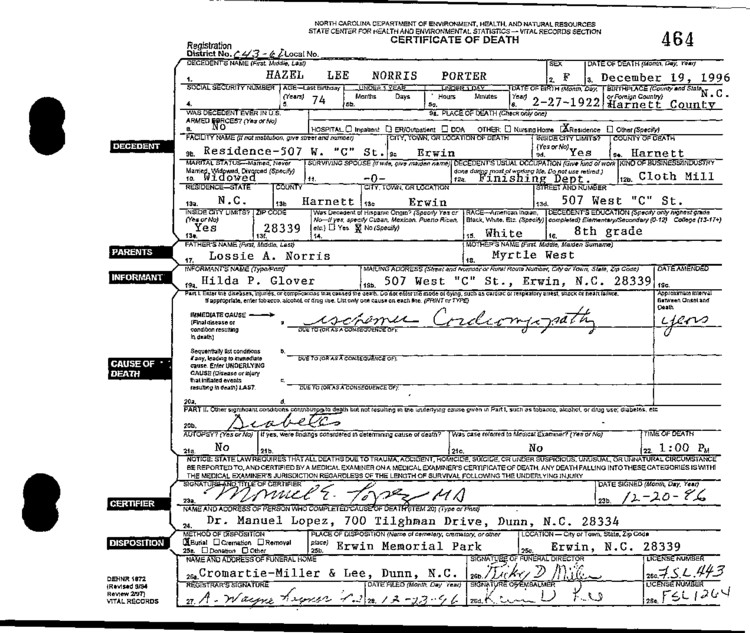 NORTH CAROLINA DEPARTMENT OF ENVIRONMENT, HEALTH, AND NATURAL RESOURCES
STATE CENTER FOR HEALTH AND ENVIRONMENTAL STATISTICS — VITAL RECORDS SECTION
CERTIFICATE OF DEATH 464
Registration
District No. C43-61 Local No.
DECEDENT'S NAME (First, Middle, Last) SEX DATE OF DEATH (Month, Day, Year)
1. HAZEL LEE NORRIS PORTER 2. F 3. December 19, 1996
SOCIAL SECURITY NUMBER AGE—Last Birthday UNDER 1 YEAR UNDER 1 DAY DATE OF BIRTH (Month, Day, BIRTHPLACE (County and State
(Years) Months Days Hours Minutes Year) or Foreign Country) N.C.
4. 5. 74 5b. 5c. 6. 2-27-1922 Harnett County
WAS DECEDENT EVER IN U.S. 9a. PLACE OF DEATH (Check only one)
ARMED FORCES? (Yes or No)
8. NO HOSPITAL: Inpatient ER/Outpatient DOA OTHER: Nursing Home X Residence Other (Specify)
DECEDENT
FACILITY NAME (If not institution, give street and number) CITY, TOWN, OR LOCATION OF DEATH INSIDE CITY LIMITS? COUNTY OF DEATH
(Yes or No)
9b. Residence-507 W. "C" St. 9c Erwin 9d. Yes 9e. Harnett
MARITAL STATUS—Married, Never SURVIVING SPOUSE (If wife, give maiden name) DECEDENT'S USUAL OCCUPATION (Give kind of work KIND OF BUSINESS/INDUSTRY
Married, Widowed, Divorced (Specify) done during most of working life. Do not use retired.)
10. Widowed 11. -0- 12a. Finishing Dept. 12b. Cloth Mill
RESIDENCE—STATE COUNTY CITY, TOWN, OR LOCATION STREET AND NUMBER
13a. N.C. 13b Harnett 13c Erwin 13d. 507 West "C" St.
INSIDE CITY LIMITS? ZIP CODE Was Decedent of Hispanic Origin? (Specify Yes or RACE—American Indian, DECEDENT'S EDUCATION (Specify only highest grade
(Yes or No) No—If yes, specify Cuban, Mexican, Puerto Rican, Black, White, Etc. (Specify) completed) Elementary/Secondary (0-12) College (13-17+)
Yes 28339 etc.) Yes X No (Specify) White 8th grade
13e. 13f. 14. 15. 16.
PARENTS
FATHER'S NAME (First, Middle, Last) MOTHER'S NAME (First, Middle, Maiden Surname)
17. Lossie A. Norris 18. Myrtle West
INFORMANT
INFORMANT'S NAME (Type/Print) MAILING ADDRESS (Street and Number or Rural Route Number, City or Town, State, Zip Code) DATE AMENDED
19a. Hilda P. Glover 19b. 507 West "C" St., Erwin, N.C. 28339 19c.
Part I. Enter the diseases, injuries, or complications that caused the death. Do not enter the mode of dying, such as cardiac or respiratory arrest, shock or heart failure. Approximate Interval
If appropriate, enter tobacco, alcohol, or drug use. List only one cause on each line. (PRINT or TYPE) Between Onset and
Death.
IMMEDIATE CAUSE
(Final disease or a. ischemic Cardiomyopathy years
condition resulting DUE TO (OR AS A CONSEQUENCE OF):
in death)
Sequentially list conditions b.
if any, leading to immediate DUE TO (OR AS A CONSEQUENCE OF):
cause. Enter UNDERLYING
CAUSE OF DEATH
CAUSE (Disease or injury c.
that initiated events
resulting in death) LAST. DUE TO (OR AS A CONSEQUENCE OF):
20a. d.
PART II. Other significant conditions contributing to death but not resulting in the underlying cause given in Part I, such as tobacco, alcohol, or drug use; diabetes, etc
20b. Diabetes
AUTOPSY? (Yes or No) If yes, were findings considered in determining cause of death? Was case referred to Medical Examiner? (Yes or No) TIME OF DEATH
21a. No 21b. 21c. No 22. 1:00 PM
NOTICE: STATE LAW REQUIRES THAT ALL DEATHS DUE TO TRAUMA, ACCIDENT, HOMICIDE, SUICIDE, OR UNDER SUSPICIOUS, UNUSUAL, OR UNNATURAL CIRCUMSTANCE
BE REPORTED TO, AND CERTIFIED BY A MEDICAL EXAMINER ON A MEDICAL EXAMINER'S CERTIFICATE OF DEATH. ANY DEATH FALLING INTO THESE CATEGORIES IS WITHI
THE MEDICAL EXAMINER'S JURISDICTION REGARDLESS OF THE LENGTH OF SURVIVAL FOLLOWING THE UNDERLYING INJURY
SIGNATURE AND TITLE OF CERTIFIER DATE SIGNED (Month, Day, Year)
CERTIFIER
23a. Manuel E. Lopez MD 23b. 12-20-96
NAME AND ADDRESS OF PERSON WHO COMPLETED CAUSE OF DEATH (ITEM 20) (Type or Print)
24. Dr. Manuel Lopez, 700 Tilghman Drive, Dunn, N.C. 28334
DISPOSITION
METHOD OF DISPOSITION PLACE OF DISPOSITION (Name of cemetery, crematory, or other LOCATION — City or Town, State, Zip Code
X Burial Cremation Removal place)
25a. Donation Other 25b. Erwin Memorial Park 25c. Erwin, N.C. 28339
NAME AND ADDRESS OF FUNERAL HOME SIGNATURE OF FUNERAL DIRECTOR LICENSE NUMBER
26a. Cromartie-Miller & Lee, Dunn, N.C. 26b. Ricky D Miller 26c. FSL443
DEHNR 1872 REGISTRAR'S SIGNATURE DATE FILED (Month, Day, Year) SIGNATURE OF EMBALMER LICENSE NUMBER
(Revised 9/94
Review 2/97) 27. A. Wayne 28. 12-23-96 26d. 26e. FSL1264
VITAL RECORDS